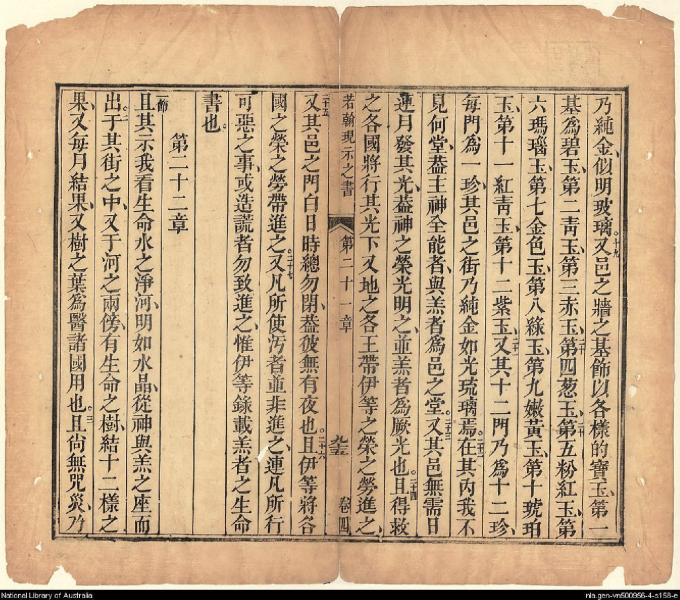 乃純金似明玻璃又邑之牆之基飾以各樣的寶玉第一
基為碧玉第二青玉第三赤玉第四葱玉第五粉紅玉第
六瑪瑙玉第七金色玉第八綠玉第九嫩黃玉第十琥珀
玉第十一紅青玉第十二紫玉又其十二門乃為十二珍
每門為一珍其邑之街乃純金如光琉璃焉在其內我不
見何堂葢王神全能者與羔者為邑之堂又其邑無需日
連月發其光葢神之榮光明之並羔者為厥光也且得救
之各國將行其光下又地之各王帶伊等之榮之勞進之
若翰現示之書 第二十一章 卷四
又其邑之門白日時總勿閉葢彼無有夜也且伊等將各
國之榮之勞帶進之又凡所使污者並非進之連凡所行
可惡之事或造謊者勿致進之惟伊等錄載羔者之生命
書也
第二十二章
一節且其示我看生命水之淨河明如水晶從神與羔之座而
出于其街之中又于河之兩傍有生命之樹結十二樣之
果又每月結果又樹之葉為醫諸國用也且尙無咒災乃
National Library of Australia
nla.gen-vn500956-4-s158-e